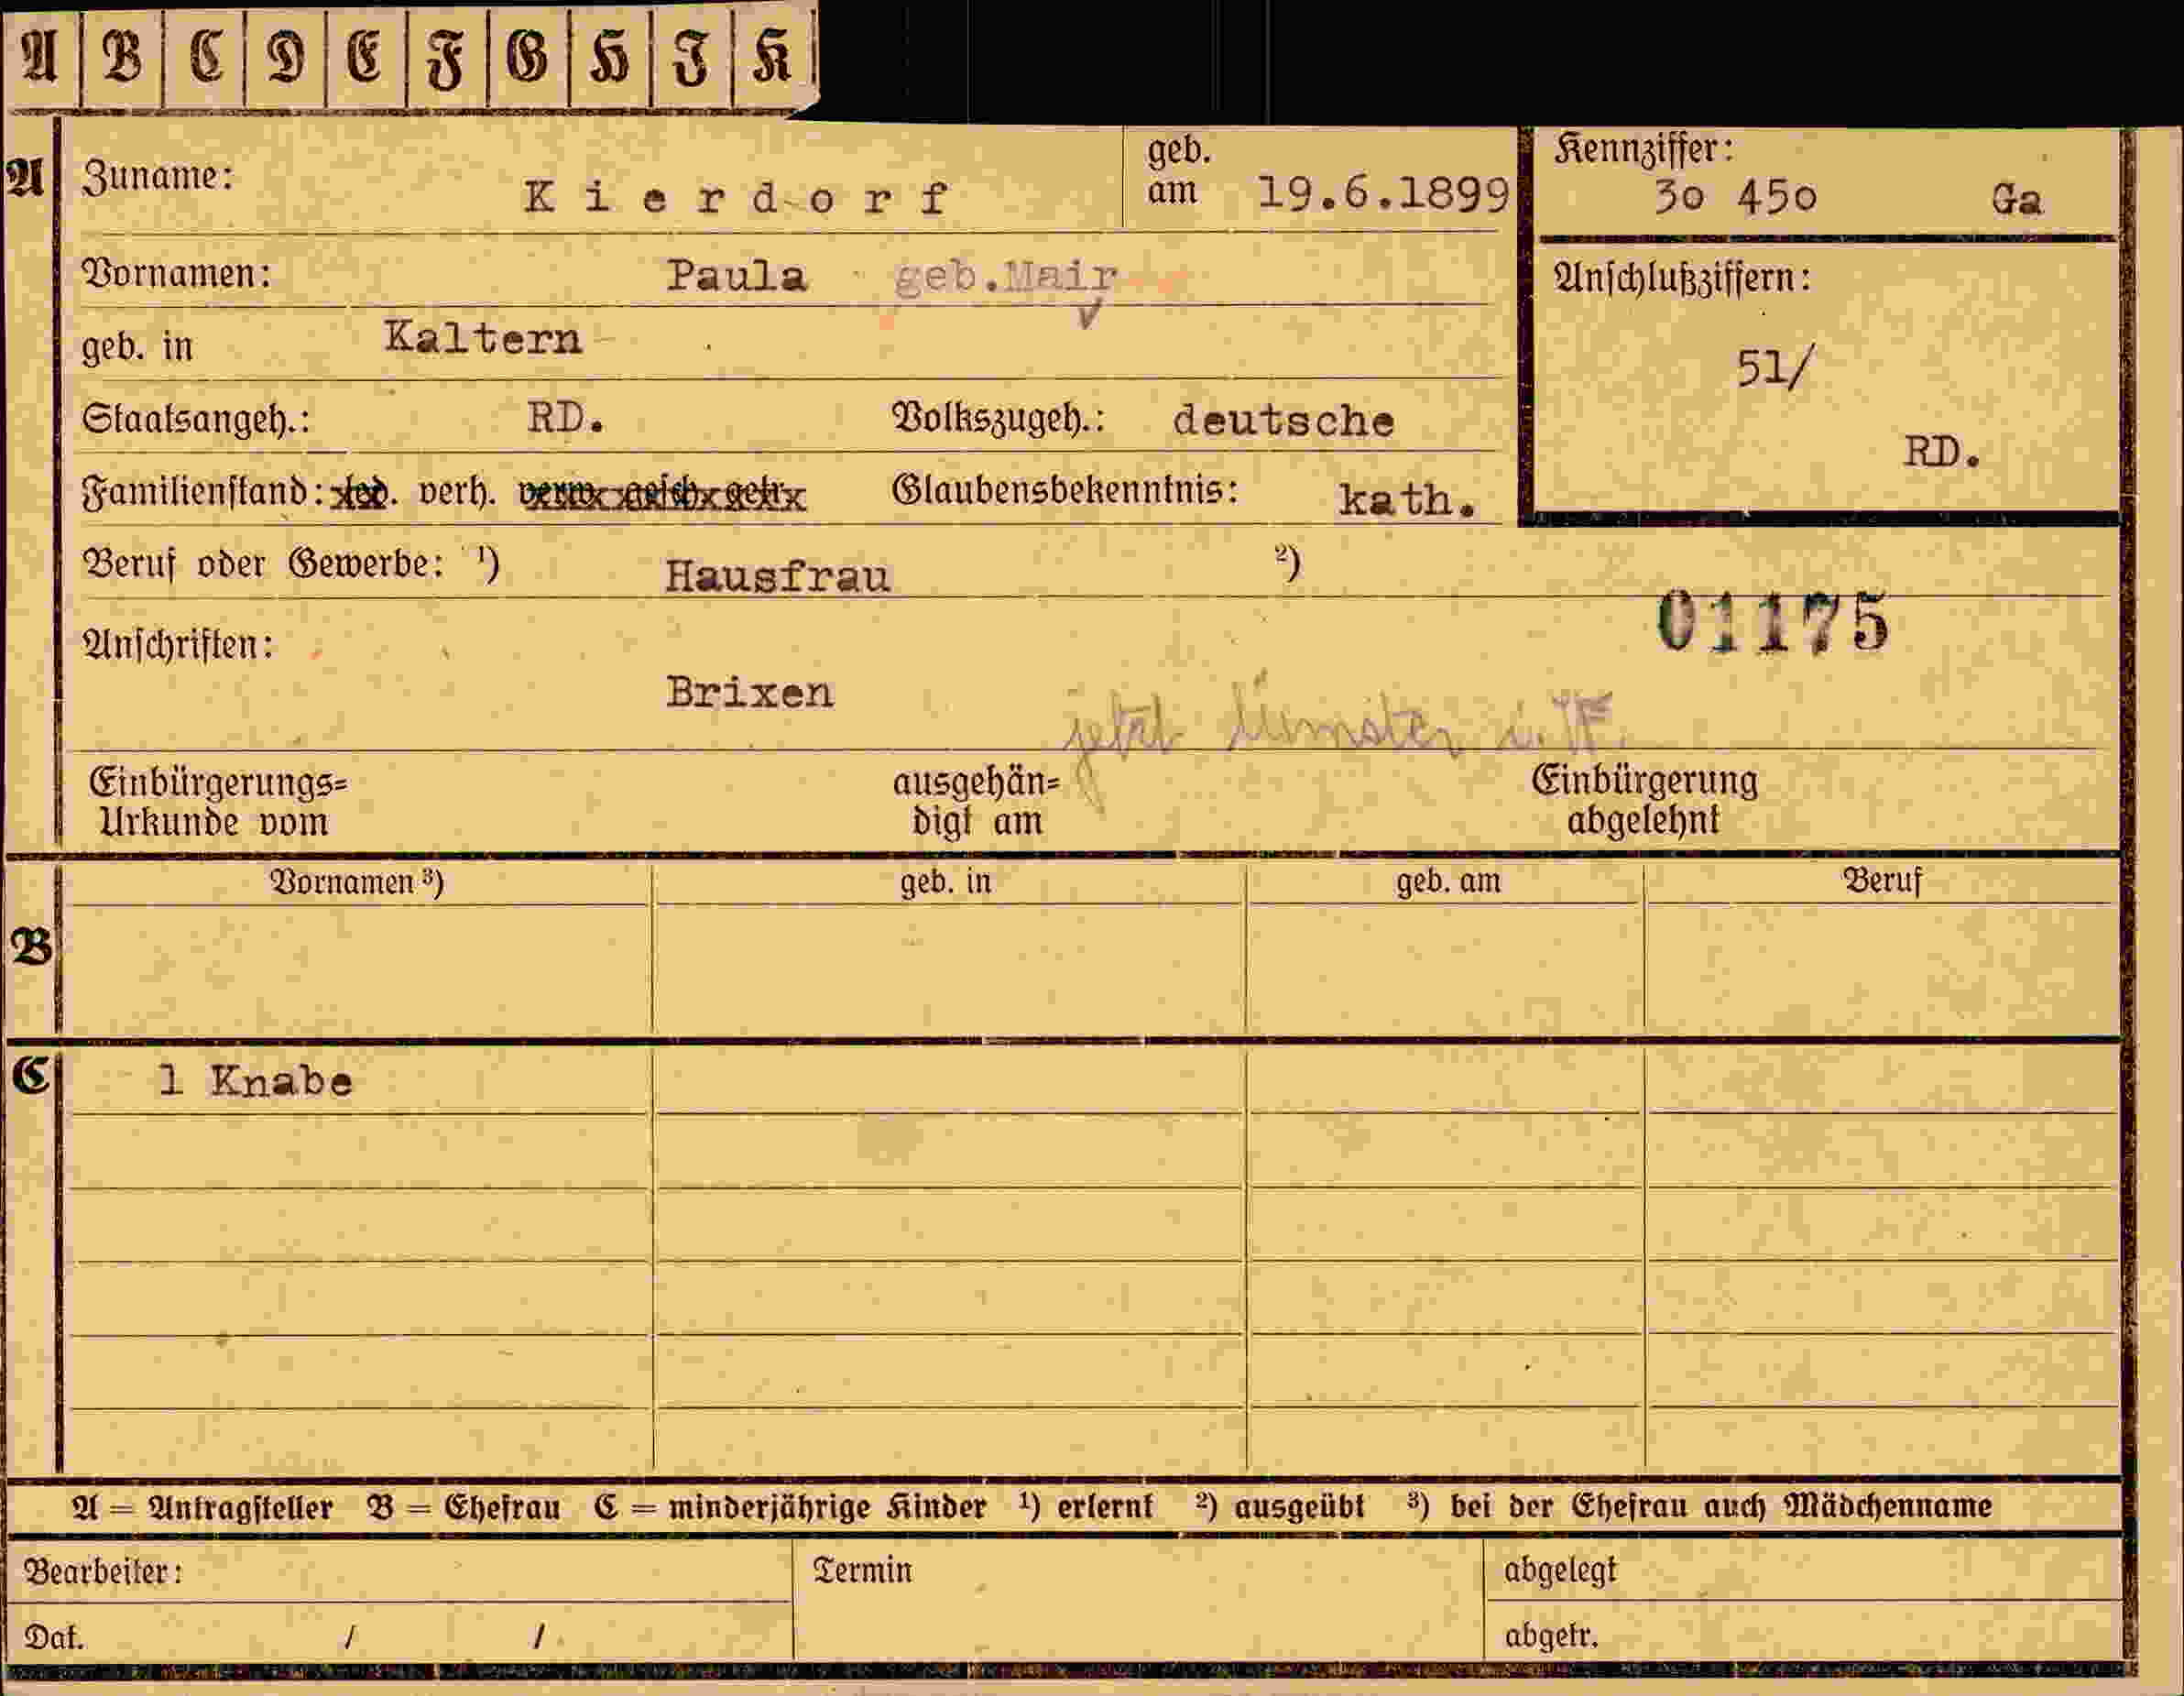 A B C D E F G H J K
A Zuname: Kierdorf geb. am 19.6.1899 Kennziffer: 30 450 Ga
Vornamen: Paula geb. Mair Anschlußziffern:
geb. in Kaltern 51/
Staatsangeh.: RD. Volkszugeh.: deutsche RD.
Familienstand: led. verh. verw. gesch. getr. Glaubensbekenntnis: kath.
Beruf oder Gewerbe: ¹) Hausfrau ²)
01175
Anschriften:
Brixen jetzt Münster i. W.
Einbürgerungs= ausgehän= Einbürgerung
Urkunde vom digt am abgelehnt
Vornamen ³) geb. in geb. am Beruf
B
C 1 Knabe
A = Antragsteller B = Ehefrau C = minderjährige Kinder ¹) erlernt ²) ausgeübt ³) bei der Ehefrau auch Mädchenname
Bearbeiter: Termin abgelegt
Dat. / / abgetr.